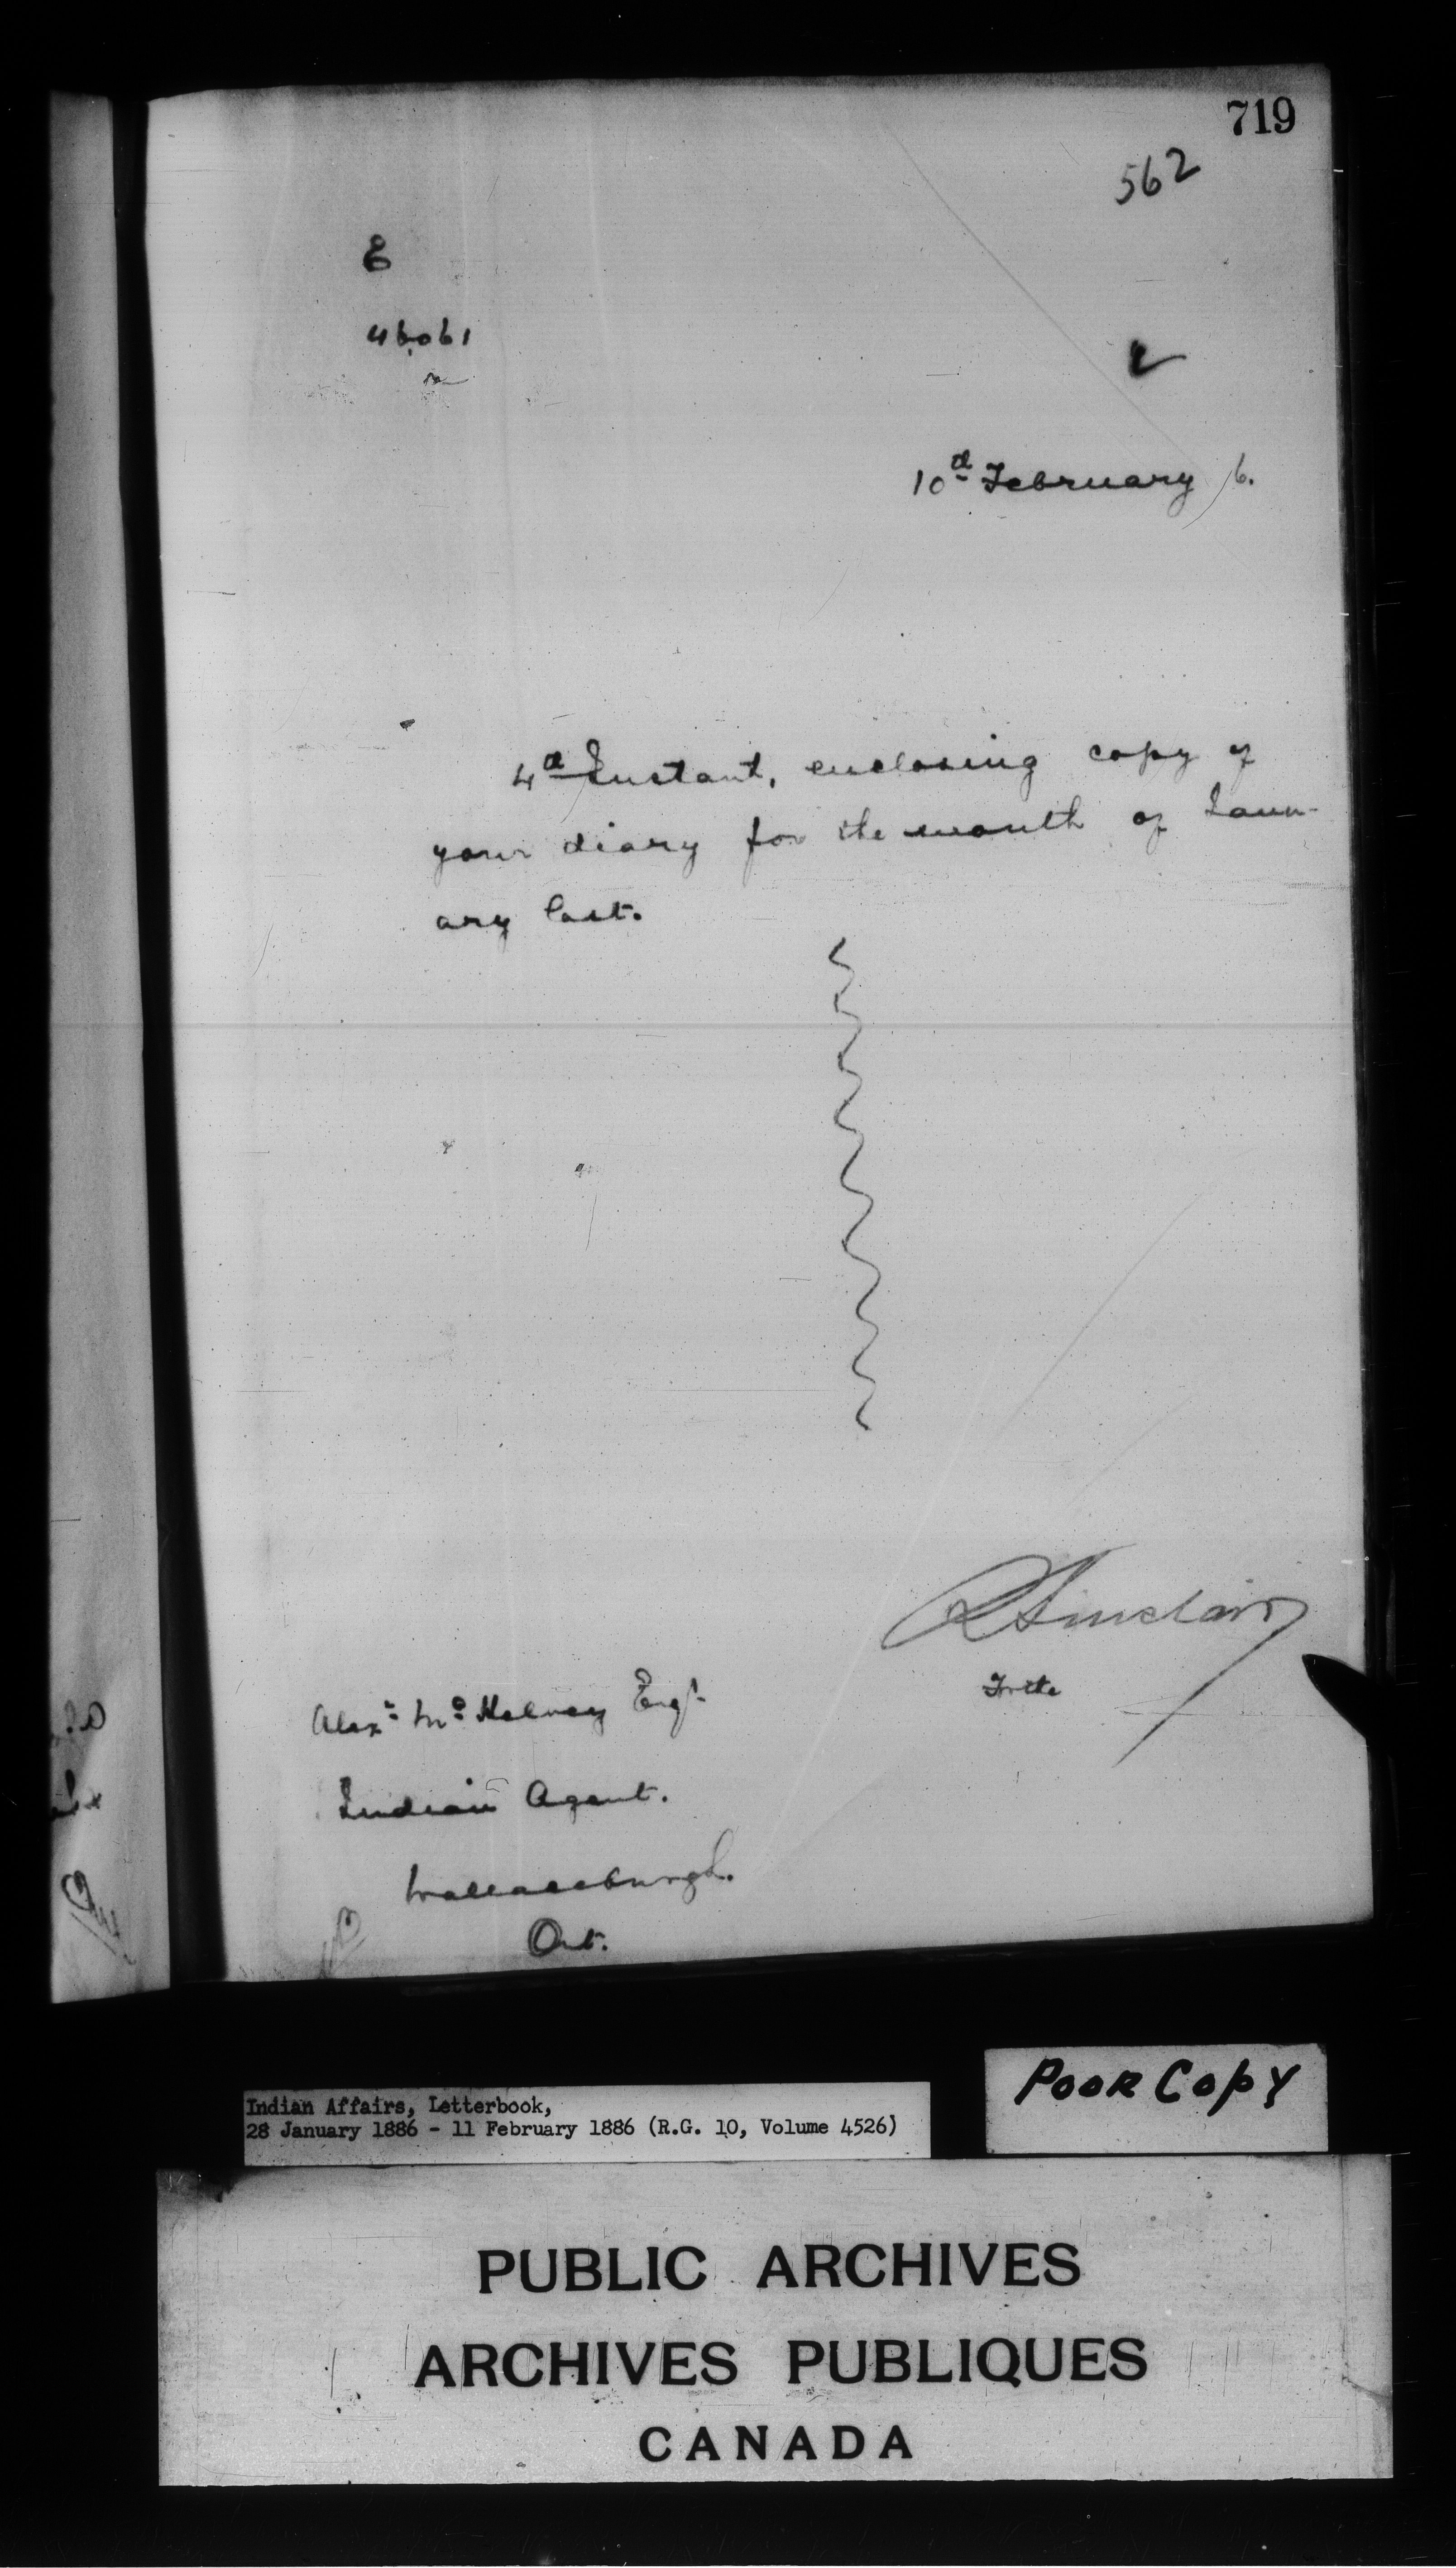 719
562
E
46,061
10th February 6.
4th Instant, enclosing copy of
your diary for the month of Janu-
ary last.
R Sinclair
Alexr McKelvey Esqr
Indian Agent.
Wallaceburgh.
Ont.
POOR COPY
Indian Affairs, Letterbook,
28 January 1886 - 11 February 1886 (R.G. 10, Volume 4526)
PUBLIC ARCHIVES
ARCHIVES PUBLIQUES
CANADA